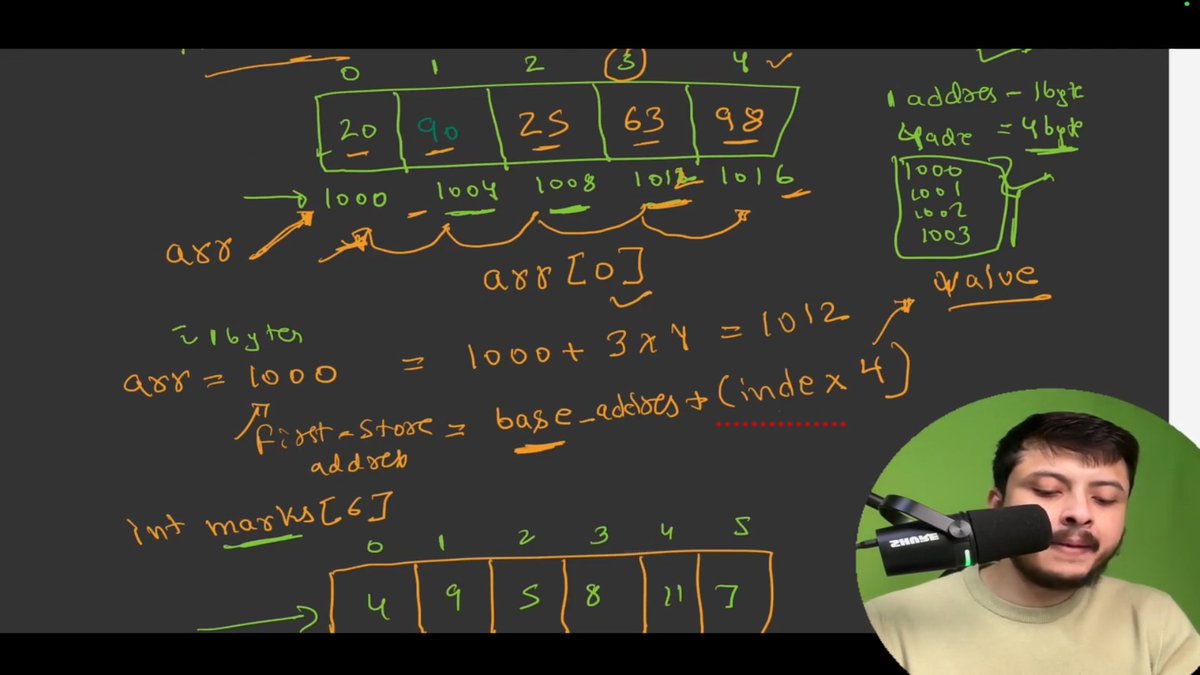 0 1 2 3 4
20 90 25 63 98
1000 1004 1008 1012 1016
arr
arr[0]
1 addres - 1byte
= 4 byte
1000
1001
1002
1003
value
1bytes
arr = 1000
= 1000 + 3 x 4 = 1012
first-store = base_addres + (index 4)
address
int marks[6]
0 1 2 3 4 5
4 9 5 8 11 7